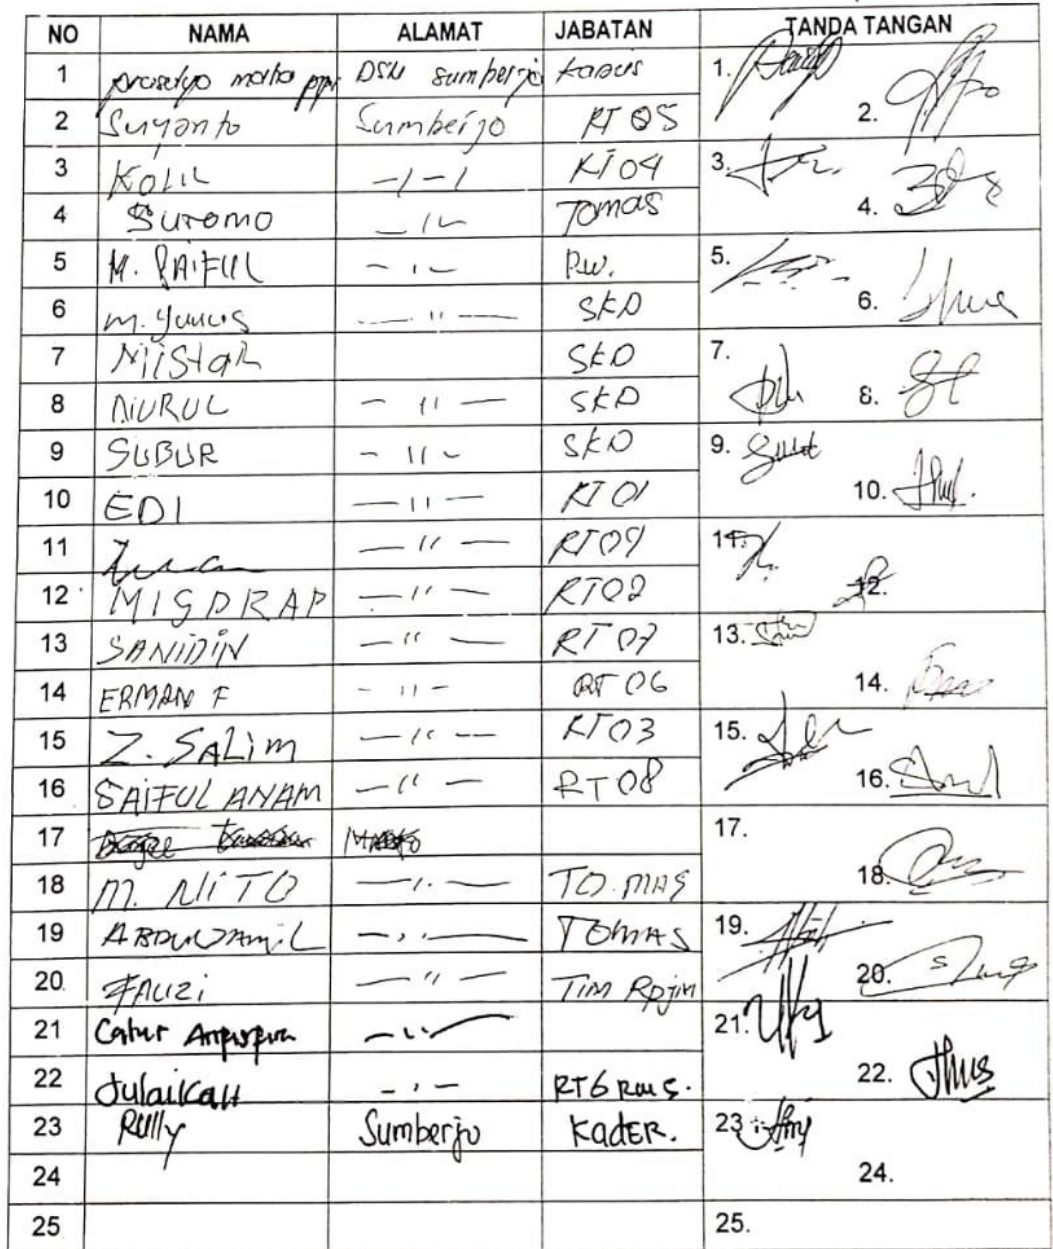 NO NAMA ALAMAT JABATAN TANDA TANGAN
1 prasetyo DSN sumberjo Kasus 1.
2 Suyanto Sumberjo RT 05 2.
3 KOLIL -/-/ RT 04 3.
4 Suromo - 11 - Tomas 4.
5 M. SAIFUL - 11 - RW. 5.
6 M. Yunus - 11 - SKD 6.
7 MiStar SKD 7.
8 NURUL - 11 - SKD 8.
9 SUBUR - 11 - SKD 9.
10 EDI - 11 - RT 01 10.
11 - 11 - RT 09 11.
12 MISDRAP - 11 - RT 02 12.
13 SANIDIN - 11 - RT 07 13.
14 ERMAN F - 11 - RT 06 14.
15 Z. SALim - 11 - RT 03 15.
16 SAIFUL ANAM - 11 - RT 08 16.
17 17.
18 M. NITO - 11 - TO.MAS 18.
19 ABDUL JAMIL - 11 - TOMAS 19.
20 FAUZi - 11 - Tim Rpjm 20.
21 Catur - 11 - 21.
22 Julaikah - 11 - RT6 22.
23 Rully Sumberjo KadER. 23.
24 24.
25 25.